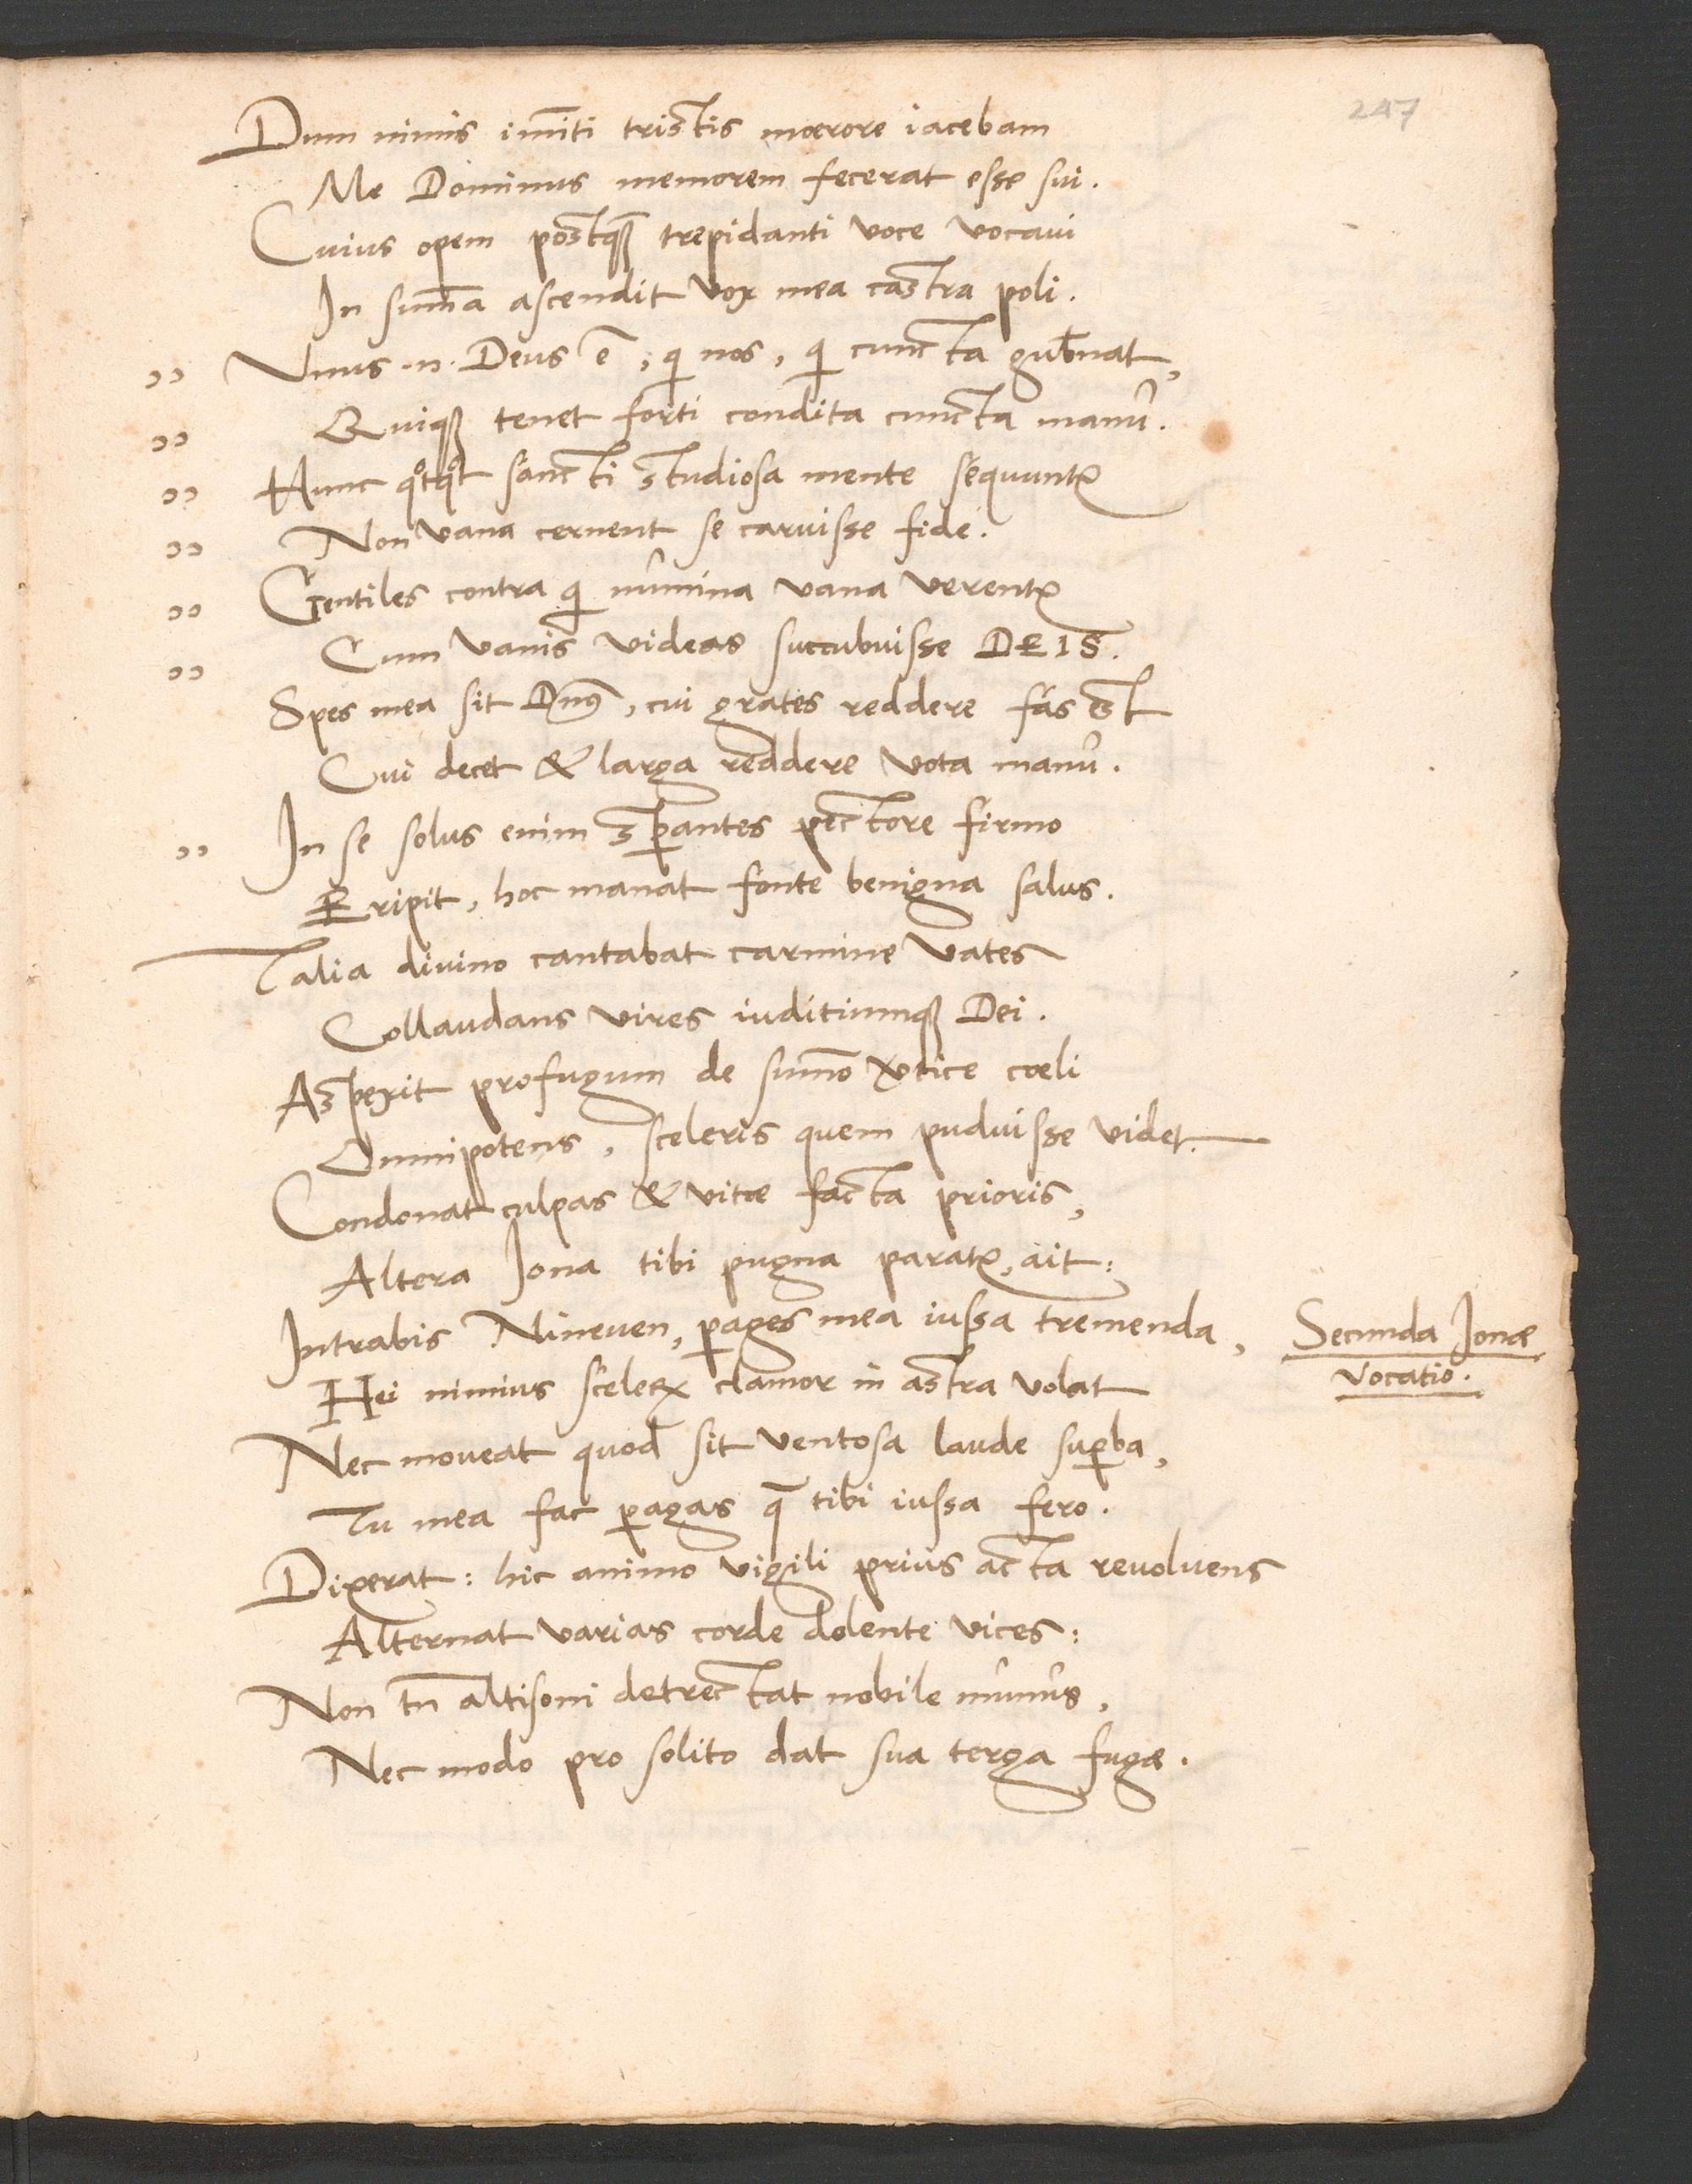 247
Dum nimis im̄iti tristis moerore iacebam
Me Dominus memorem fecerat esse sui.
Cuius opem postqꝫ trepidanti voce vocaui
In sum̄a ascendit vox mea castra poli.
" Vnus .n. Deus ē, qi nos, qi cuncta gub̄nat,
" Quiqꝫ tenet forti condita cuncta manu.
" Hunc qotqot sancti studiosa mente sequuntr
" Non vana cernent se caruisse fide.
" Gentiles contra qi numina vana verentr
" Cum vanis videas succubuisse DEIS.
Spes mea sit Dn̄s, cui grates reddere fas est
Cui decet & larga reddere vota manu.
" In se solus enim sꝑantes pectore firmo
Eripit, hoc manat fonte benigna salus.
Talia divino cantabat carmine vates
Collaudans vires iuditiumqꝫ Dei.
Aspexit profugum de sum̄o vertice coeli
Omnipotens, sceleris quem puduisse videt.
Condonat culpas & vitæ facta prioris,
Altera Iona tibi pugna paratr, ait:
Intrabis Nineuen, ꝑages mea iussa tremenda,
Secunda Ionæ
vocatio.
Hei nimius scelerꝝ clamor in astra volat
Nec moveat quod sit ventosa laude suꝑba,
Tu mea fac ꝑagas q̄ tibi iussa fero.
Dixerat: hic animo vigili prius acta revoluens
Alternat varias corde dolente vices:
Non tn̄ altisoni detrectat nobile munus,
Nec modo pro solito dat sua terga fugæ.